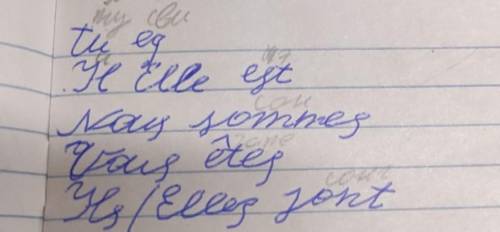 Tu es
Il Elle est
Nous sommes
Vous êtes
Ils/Elles sont